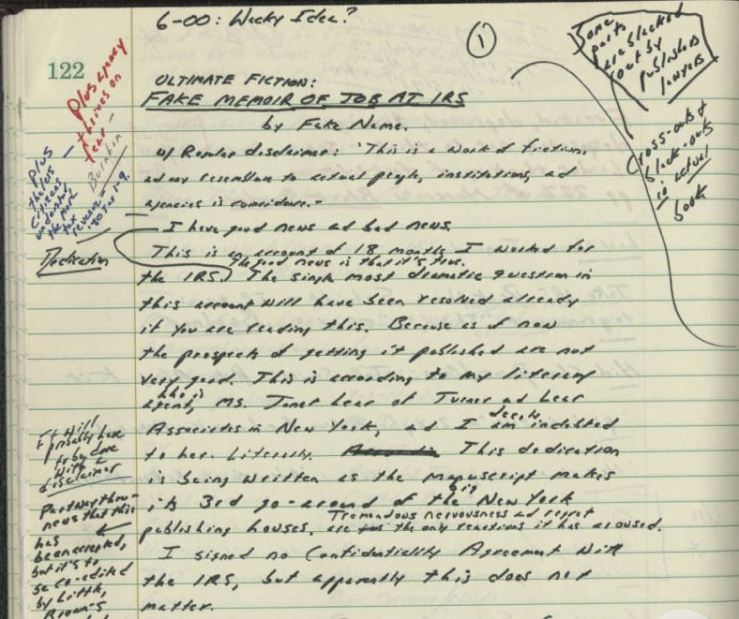 6-00: Wacky Idea?
①
122
ULTIMATE FICTION:
FAKE MEMOIR OF JOB AT IRS
by Fake Name.
w/ Random disclaimer: "This is a work of fiction,
and any resemblance to actual people, institutions, and
agencies is coincidence."
I have good news and bad news.
This is an account of 18 months I worked for
The good news is that it's true.
the IRS. The single most dramatic question in
this account will have been resolved already
if you are reading this. Because as of now
the prospects of getting it published are not
very good. This is according to my literary
agent, who is Ms. Janet Lear of Turner and Lear
Associates in New York, and I am deeply indebted
to her. Literally. This dedication
is being written as the manuscript makes
its 3rd go-around of the big New York
publishing houses. Tremendous nervousness and regret
are the only reactions it has aroused.
I signed no Confidentiality Agreement with
the IRS, but apparently this does not
matter.
Some
parts
are blacked
out by
publisher's
lawyers
Cross-outs &
black-outs
in actual
book
Plus agency
thrives on
fear
Burnham
Plus
the less
citizens
understand,
the more
tax
revenue
Dedication
It will
probably have
to be done
with a
disclaimer
Partway thru—
news that this
has
been accepted,
but it's to
be co-edited
by Little,
Brown's